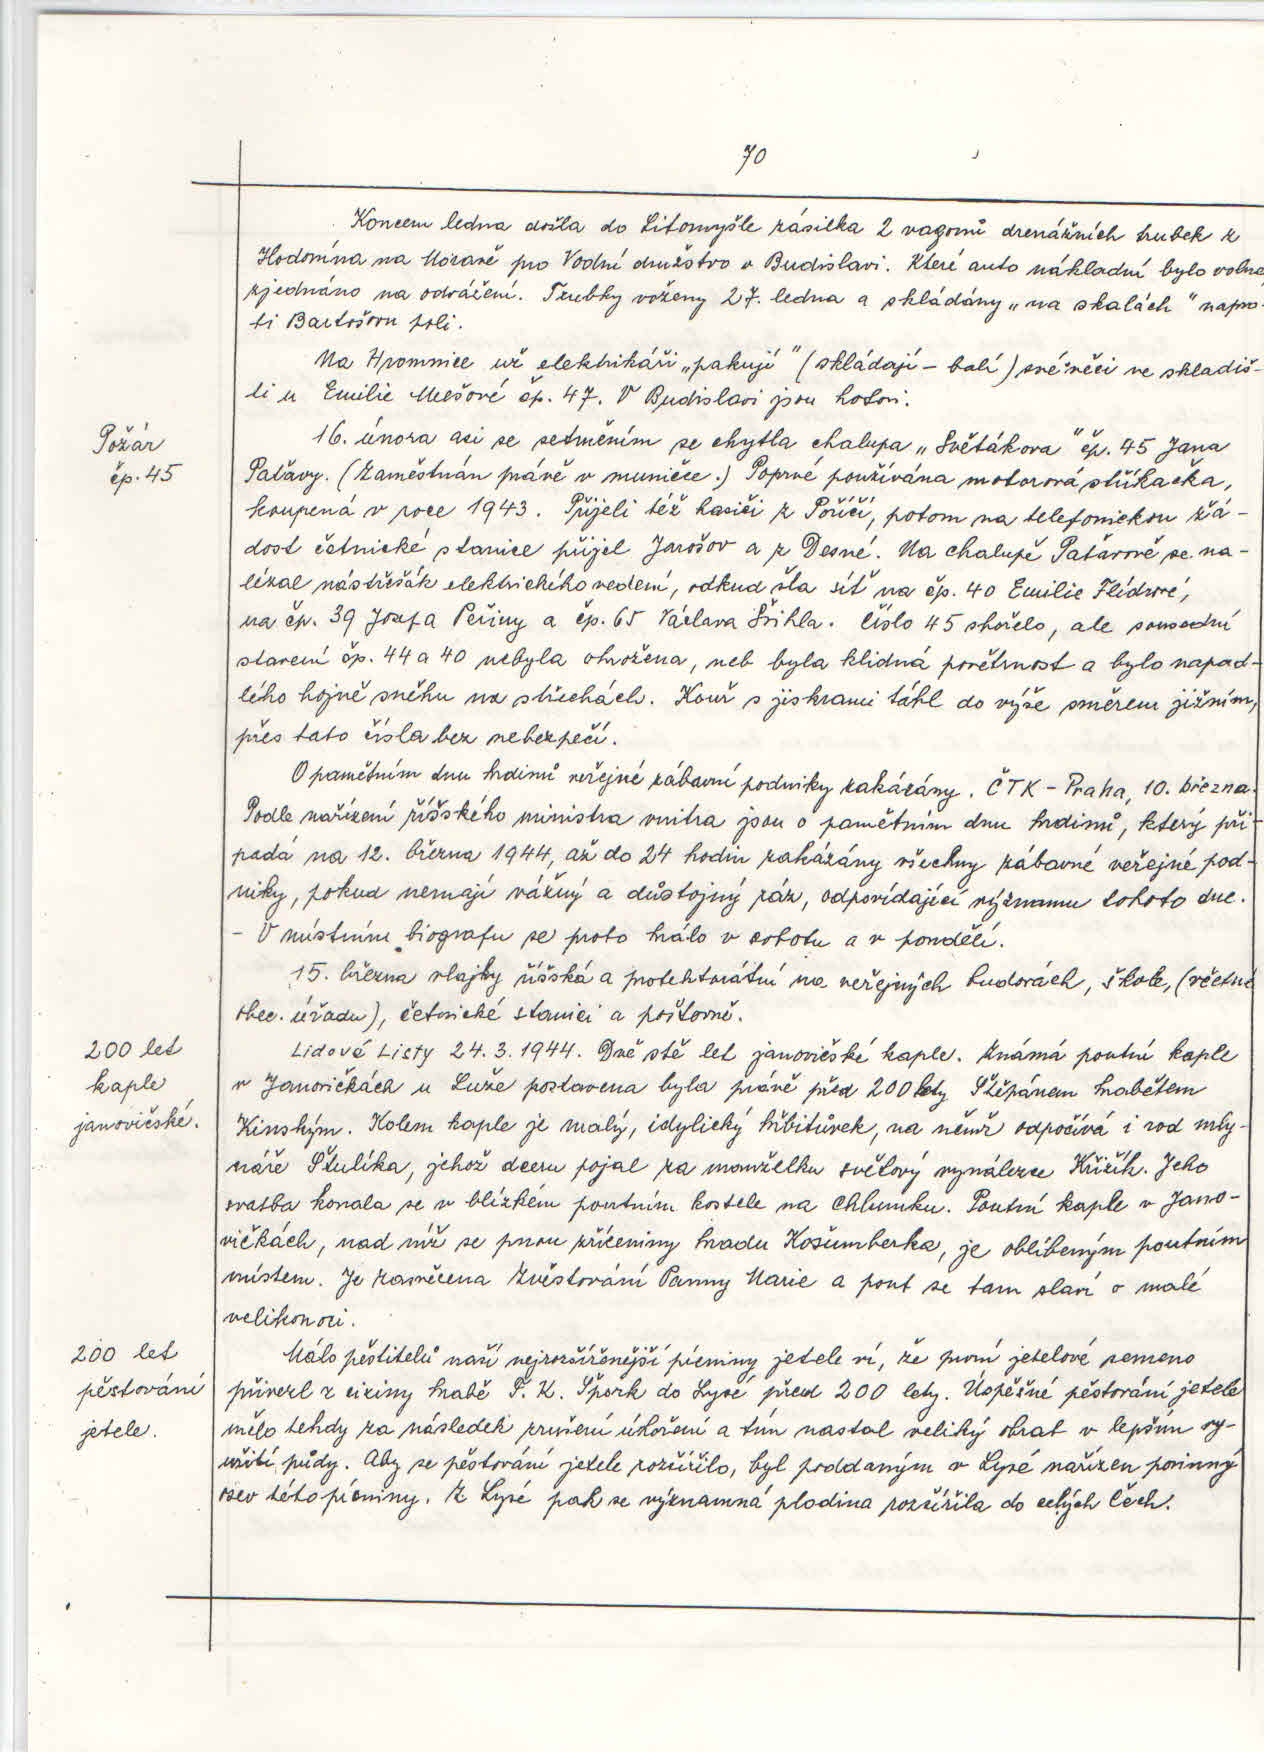 70
Koncem ledna došla do Litomyšle zásilka 2 vagonů drenážních trubek z
Hodonína na Moravě pro Vodní družstvo v Budislavi. Které auto nákladní bylo volné
zjednáno na odvážení. Trubky voženy 27. ledna a skládány „na skalách" napro-
ti Bartošovu poli.
Na Hromnice už elektrikáři „pakují" (skládají – balí) své věci ve skladiš-
ti u Emilie čp. 47. V Budislavi jsou hotovi.
Požár
čp. 45
16. února asi se setměním se chytla chalupa „Světákova" čp. 45 Jana
Patávy. (Zaměstnán právě v muničce.) Poprvé používána motorová stříkačka,
koupená v roce 1943. Přijeli též hasiči z Poříčí, potom na telefonickou žá-
dost četnické stanice přijel Jarošov a z Desné. Na chalupě Patávově se na-
lézal nástřešák elektrického vedení, odkud šla síť na čp. 40 Emilie Flídrové,
na čp. 39 Josefa Peřiny a čp. 65 Václava Šrihla. Číslo 45 shořelo, ale sousední
stavení čp. 44 a 40 nebyla ohrožena, neb byla klidná povětrnost a bylo napad-
lého hojně sněhu na střechách. Kouř s jiskrami táhl do výše směrem jižním,
přes tato čísla bez nebezpečí.
O pamětním dnu hrdinů veřejné zábavní podniky zakázány. ČTK – Praha, 10. března.
Podle nařízení říšského ministra vnitra jsou o pamětním dnu hrdinů, který při-
padá na 12. března 1944, až do 24 hodin zakázány všechny zábavné veřejné pod-
niky, pokud nemají vážný a důstojný ráz, odpovídající významu tohoto dne.
– V místním biografu se proto hrálo v sobotu a v pondělí.
15. března vlajky říšská a protektorátní na veřejných budovách, škole, (včetně
obec. úřadu), četnické stanici a poštovně.
200 let
kaple
janovičské.
Lidové Listy 24.3.1944. Dvě stě let janovičské kaple. Známá poutní kaple
v Janovičkách u Luže postavena byla právě před 200 lety Štěpánem hrabětem
Kinským. Kolem kaple je malý, idylický hřbitůvek, na němž odpočívá i rod mly-
náře Štulíka, jehož dceru pojal za manželku světový vynálezce Křižík. Jeho
svatba konala se v blízkém poutním kostele na Chlumku. Poutní kaple v Jano-
vičkách, nad níž se pnou zříceniny hradu Košumberka, je oblíbeným poutním
místem. Je zasvěcena Zvěstování Panny Marie a pout se tam slaví o malé
velikonoci.
200 let
pěstování
jetele.
Málo pěstitelů naší nejrozšířenější pícniny jetele ví, že první jetelové semeno
přivezl z ciziny hrabě F. K. Špork do Lysé před 200 lety. Úspěšné pěstování jetele
mělo tehdy za následek zrušení úhoření a tím nastal veliký obrat v lepším vy-
užití půdy. Aby se pěstování jetele rozšířilo, byl poddaným v Lysé nařízen povinný
osev této pícniny. Z Lysé pak se významná plodina rozšířila do celých Čech.